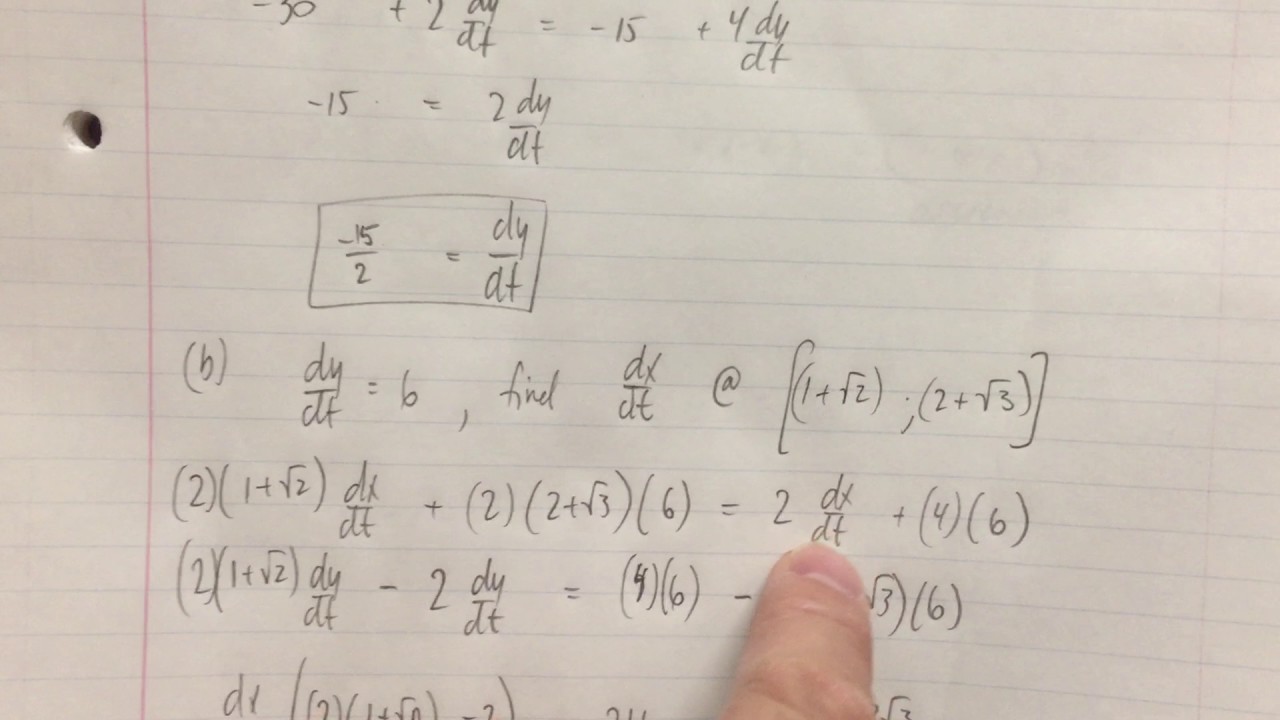 -30 + 2 dy/dt = -15 + 4 dy/dt
-15 = 2 dy/dt
-15/2 = dy/dt
(b) dy/dt = 6 , find dx/dt @ [(1+√2) ; (2+√3)]
(2)(1+√2) dx/dt + (2)(2+√3)(6) = 2 dx/dt + (4)(6)
(2)(1+√2) dy/dt - 2 dy/dt = (4)(6) - √3)(6)
dx ((2)(1+√2) -2)